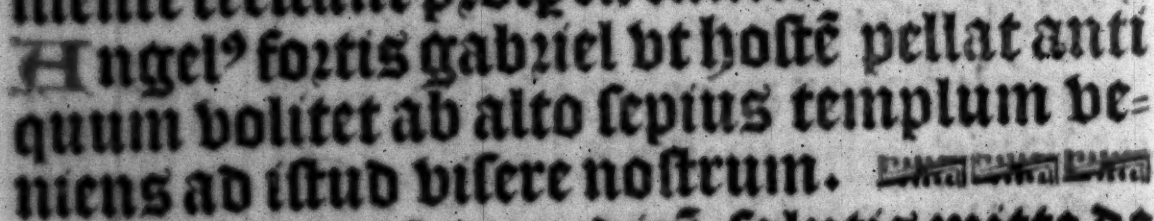 Angelꝰ fortis gabriel vt hostē pellat anti
quum volitet ab alto sepius templum ve=
niens ad istud visere nostrum.